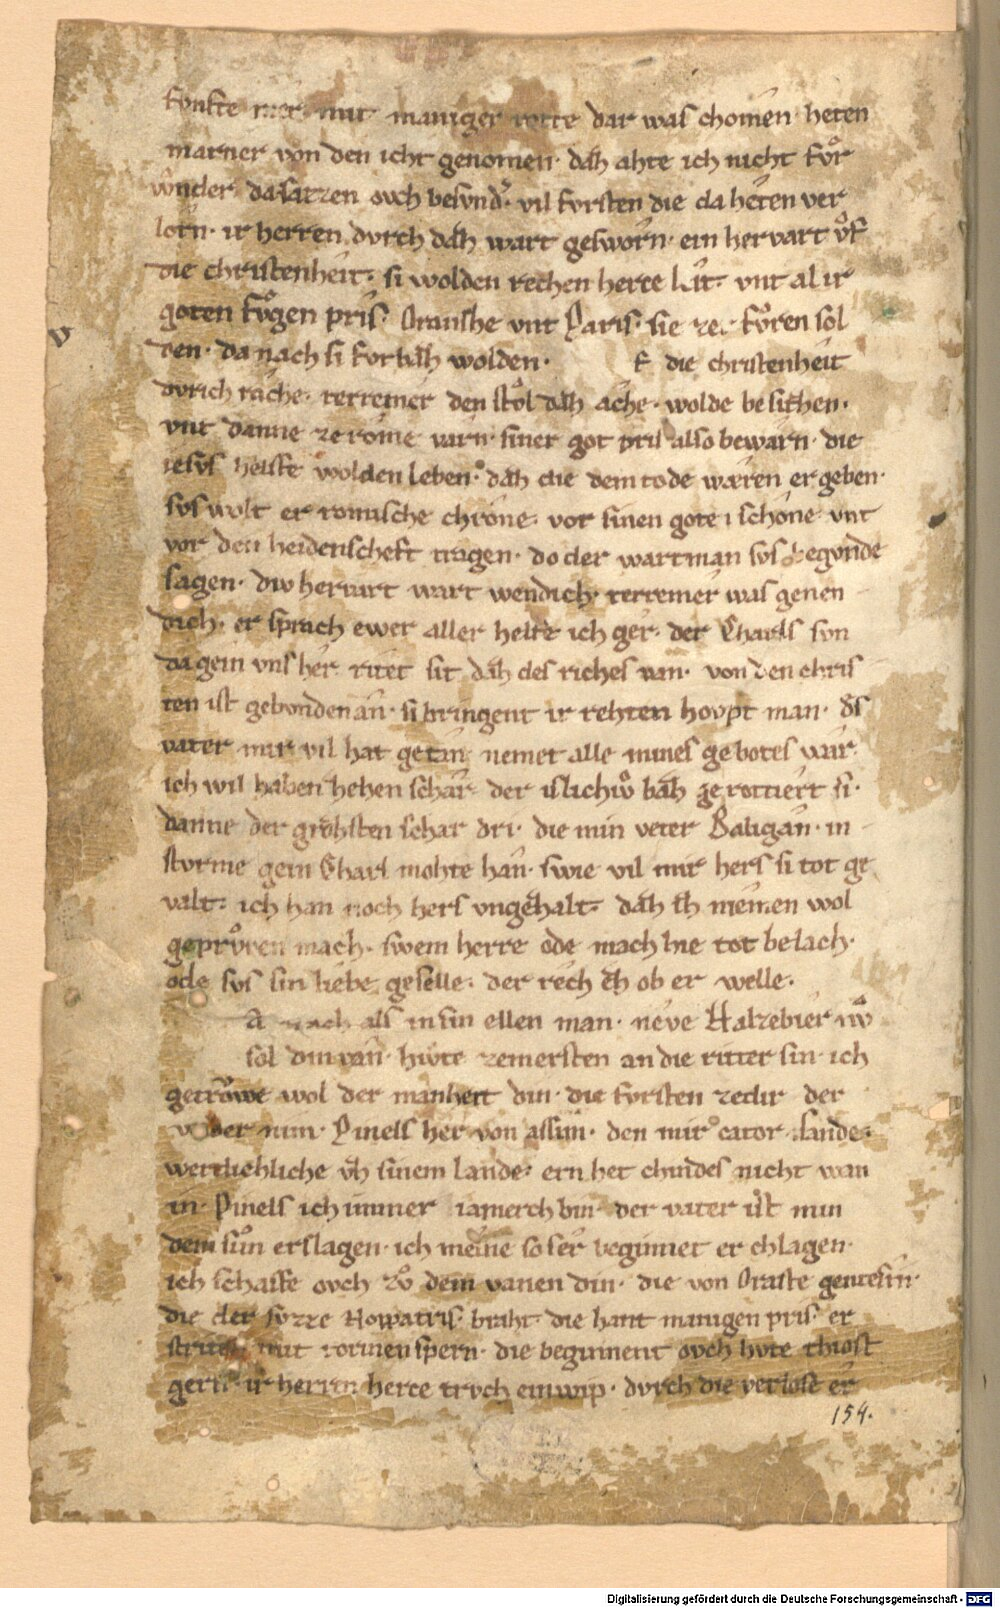 kvnfte mit maniger rotte dar was chomen· heten
marner von den icht genomen· daz ahte ich nicht fvͦr
wnder· da sazzen ovch besvnd᷑· vil fvrsten die da heten ver
lorn· ir herren dvrch daz wart gesworn· ein hervart vͦf
die christenheit· si wolden rechen herce leit· vnt al ir
goten fvͦgen pris· Oranshe vnt Paris· sie ze· fvͦren sol
den· da nach si fvrbaz wolden· f die christenheit
dvrich rache· terremer den stvͦl daz ache· wolde besitzen·
vnt danne ze rome varn· siner got pris also bewarn· die
iesvs helffe wolden leben· daz die dem tode wæren ergeben·
svs wolt er romische chrone· vor sinen goten schone vnt
vor den heidenscheft tragen· do der wartman svs begvnde
sagen· div hervart wart wendich· terremer was genen
dich· er sprach ewer aller helfe ich ger· der Charls svn
da gein vns her ritet sit daz des riches van· von den chris
ten ist gebonden an· si bringent ir rehten hovpt man· des
vater mir vil hat getan· nemet alle mines gebotes war·
ich wil haben zehen schar· der islichiv baz gerottiert si·
danne der grozsten schar dri· die min veter Baligan· in
stvrme gein Charl mohte han· swie vil mir hers si tot ge
valt· ich han noch hers vngezalt· daz ez niemen wol
geprvͦven mach· swem herre ode mach hie tot belach·
ode svs sin liebe geselle· der rech ez ob er welle·
nach als in sin ellen man· neve Halzebier nv
sol din van· hivte zem ersten an die ritter sin· ich
getrowe wol der manheit din· die fvrsten ze dir der
vater min· Pinels her von assim· den mir cator sande·
werlichliche vz sinem lande· ern het chindes nicht wan
in· Pinels ich immer iamerch bin· der vater ist min
dem svͦn erslagen· ich meine so ser beginnet er chlagen·
ich schaffe ovch zvͦ dem vanen din· die von Oraste gentesin·
die der svzze Nopatris· braht· die hant manigen pris· er
striten mit iren spern· die beginnent ovch hvte thiost
gern· ir herren herce trvch ein wip· dvrch die verlos er
154.
Digitalisierung gefördert durch die Deutsche Forschungsgemeinschaft - DFG